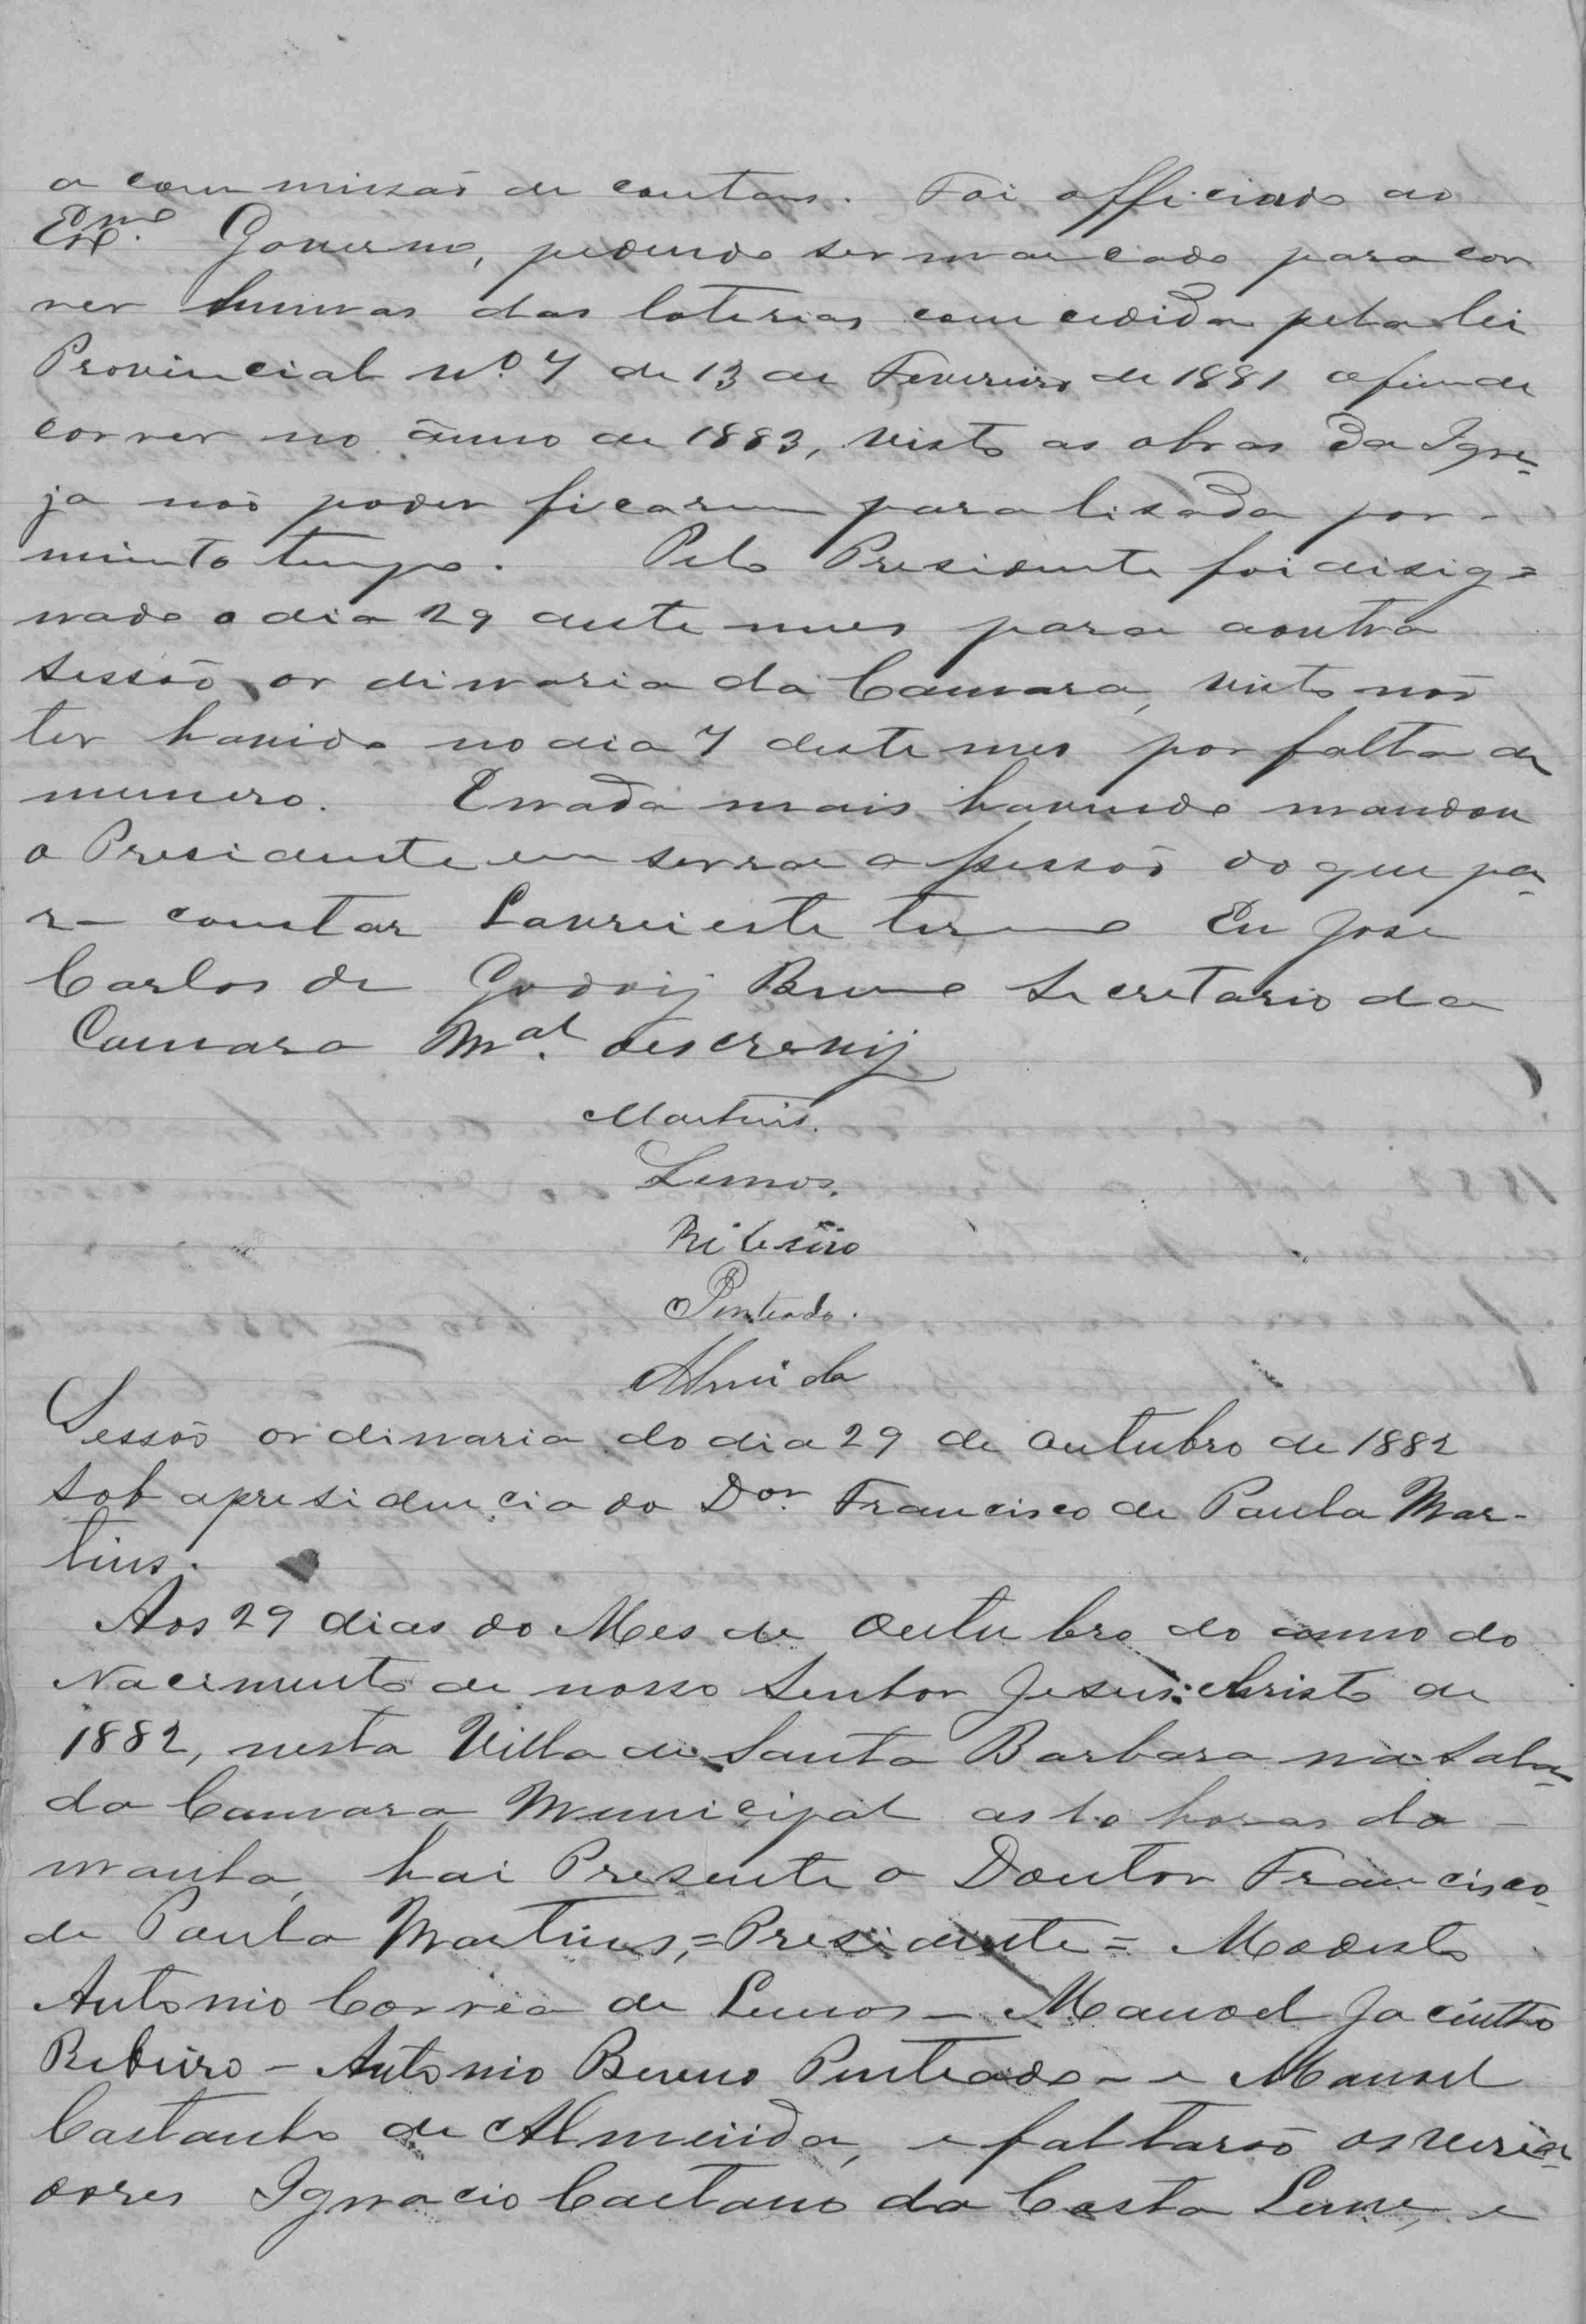 a commissão de contas. Foi officiado ao
Exmº. Governo, pedindo ser marcado para cor
rer huma das loterias comcedida pela lei
Provincial nº. 7 de 13 de Fevereiro de 1881 afim de
correr no anno de 1883, visto as obras da Igre-
ja não poder ficarem paralisada por -
muinto tempo. Pelo Presidente foi disig=
nado o dia 29 deste mes para a outra
sessão ordinaria da Camara, visto não
ter havido no dia 7 deste mes por falta de
numero. E nada mais havendo mandou
o Presidente enserrar a sessão do que pa-
ra constar Lavrei este termo Eu Jose
Carlos de Godoij Bueno Secretario da
Camara Mal. escrevij
Martins.
Lemos.
Ribeiro
Penteado.
Almeida
Sessão ordinaria do dia 29 de Outubro de 1882
sob a presidencia do Dor. Francisco de Paula Mar-
tins.
Aos 29 dias do Mes de Outubro do anno do
Nacimento de nosso Senhor Jesus Christo de
1882, nesta Villa de Santa Barbara na sala
da Camara Municipal as 10 horas da -
manha, hai Presente o Doutor Francisco
de Paula Martins, = Presidente = Modesto
Antonio Correa de Lemos - Manoel Jacintho
Ribeiro - Antonio Bueno Penteado - e Manoel
Castanho de Almeida, e faltarão os verea-
dores Ignacio Caetano da Costa Leme, e